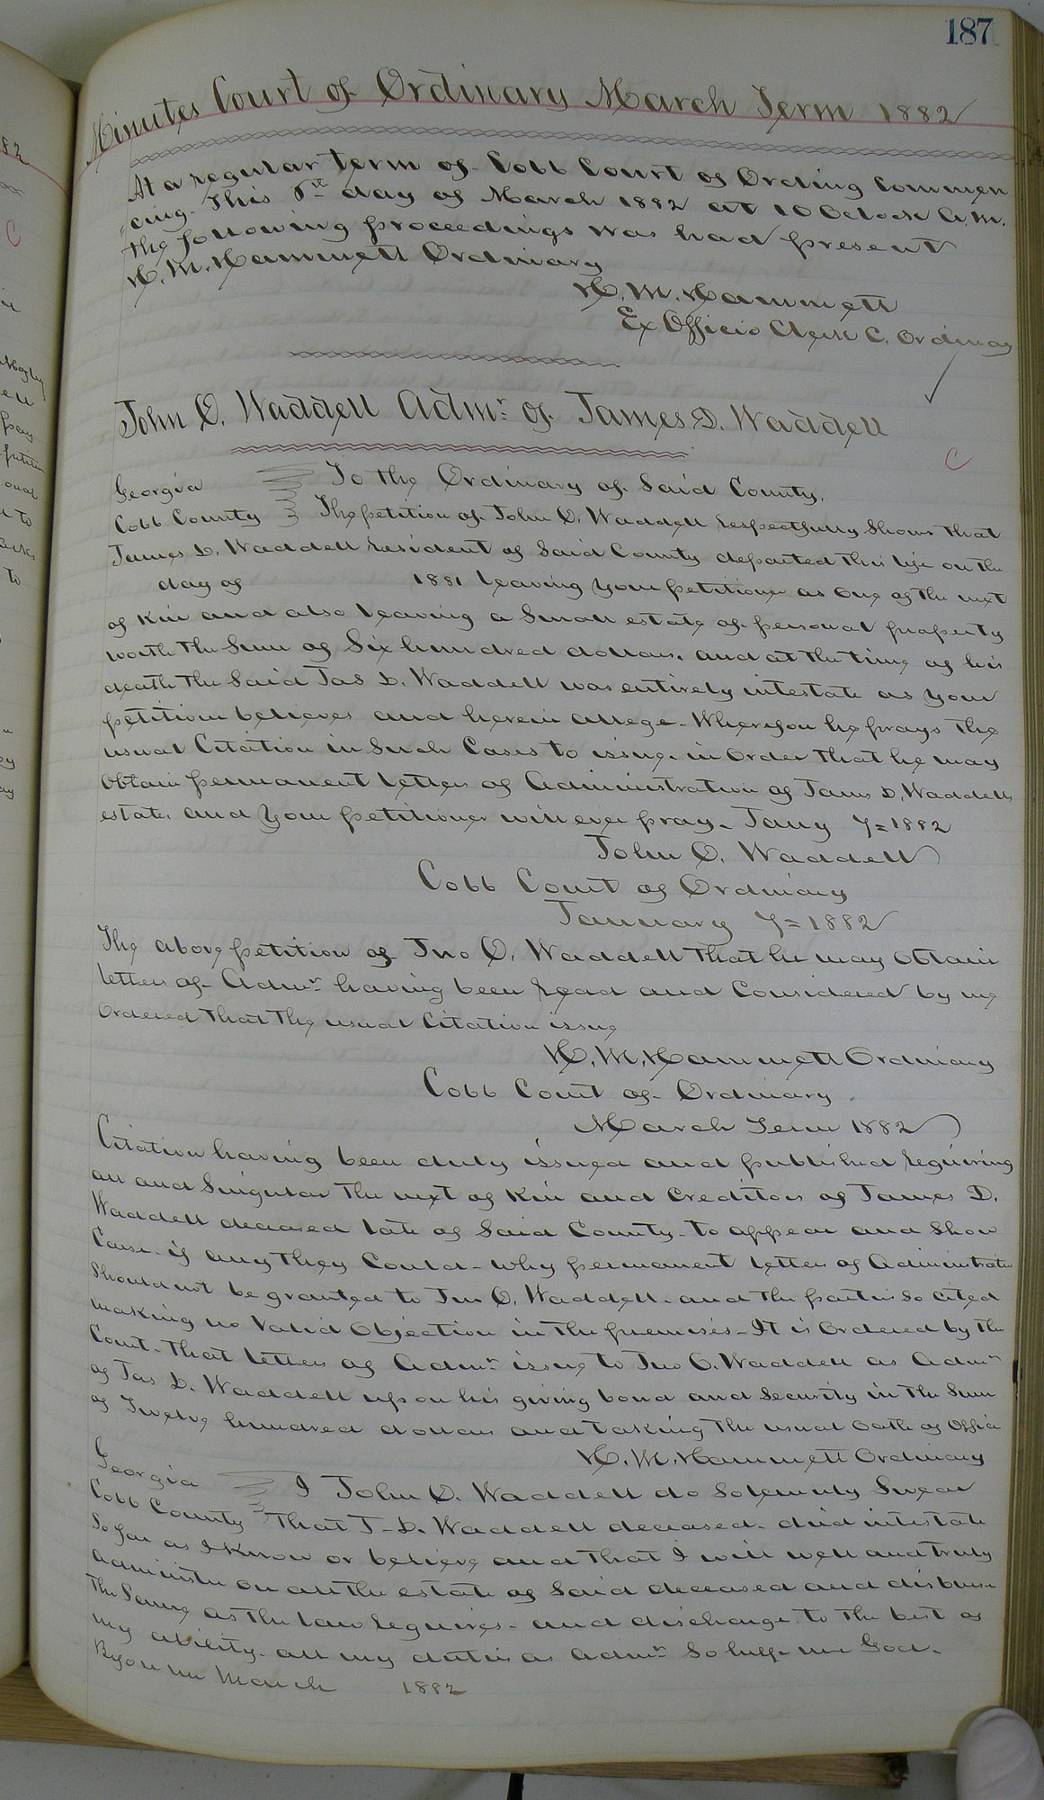 187
Minutes Court of Ordinary March Term 1882
At a regular term of Cobb Court of Ording Commen
cing This 6th day of March 1882 at 10 Oclock A.M.
the following proceedings was had present
H. M. Hammett Ordinary
H. M. Hammett
Ex Officio Clerk C. Ordinary
John O. Waddell Admr of James D. Waddell
C
Georgia To the Ordinary of Said County,
Cobb County The petition of John O. Waddell respectfully Shows that
James D. Waddell resident of Said County departed this life on the
day of 1881 leaving your petitioner as one of the next
of Kin and also leaving a Small estate of personal property
worth the Sum of Six hundred dollars. and at the time of his
death the Said Jas D. Waddell was entirely intestate as your
petition believes and herein allege. Whereyon he prays the
usual Citation in Such Cases to issue in Order that he may
Obtain permanent letters of Administration of James D. Waddells
estate and your petitioner will ever pray. Jany 7= 1882
John O. Waddell
Cobb Court of Ordinary
January 7= 1882
The above petition of Jno O. Waddell that he may obtain
letters of Admr having been read and Considered by me
Ordered that the usual Citation issue
H. M. Hammett Ordinary
Cobb Court of Ordinary
March Term 1882
Citation having been duly issued and published requiring
all and Singular the next of Kin and Creditors of James D.
Waddell deceased late of Said County to appear and Show
Cause if any they Could why permanent letters of Administration
Should not be granted to Jno O. Waddell and the parties so cited
making no Valid Objection in the premises It is Ordered by the
Court That letters of Admr issue to Jno O. Waddell as Admr
of Jas D. Waddell upon his giving bond and Security in the Sum
of Twelve hundred dollars and taking the usual oath of Office
H. M. Hammett Ordinary
Georgia I John O. Waddell do Solemnly Swear
Cobb County That J. D. Waddell deceased died intestate
So far as I Know or believe and that I will well and truly
Administer on all the estate of Said deceased and disburse
The Same as the law requires and discharge to the best of
my ability all my duties as Admr So help me God.
Before me March 1882